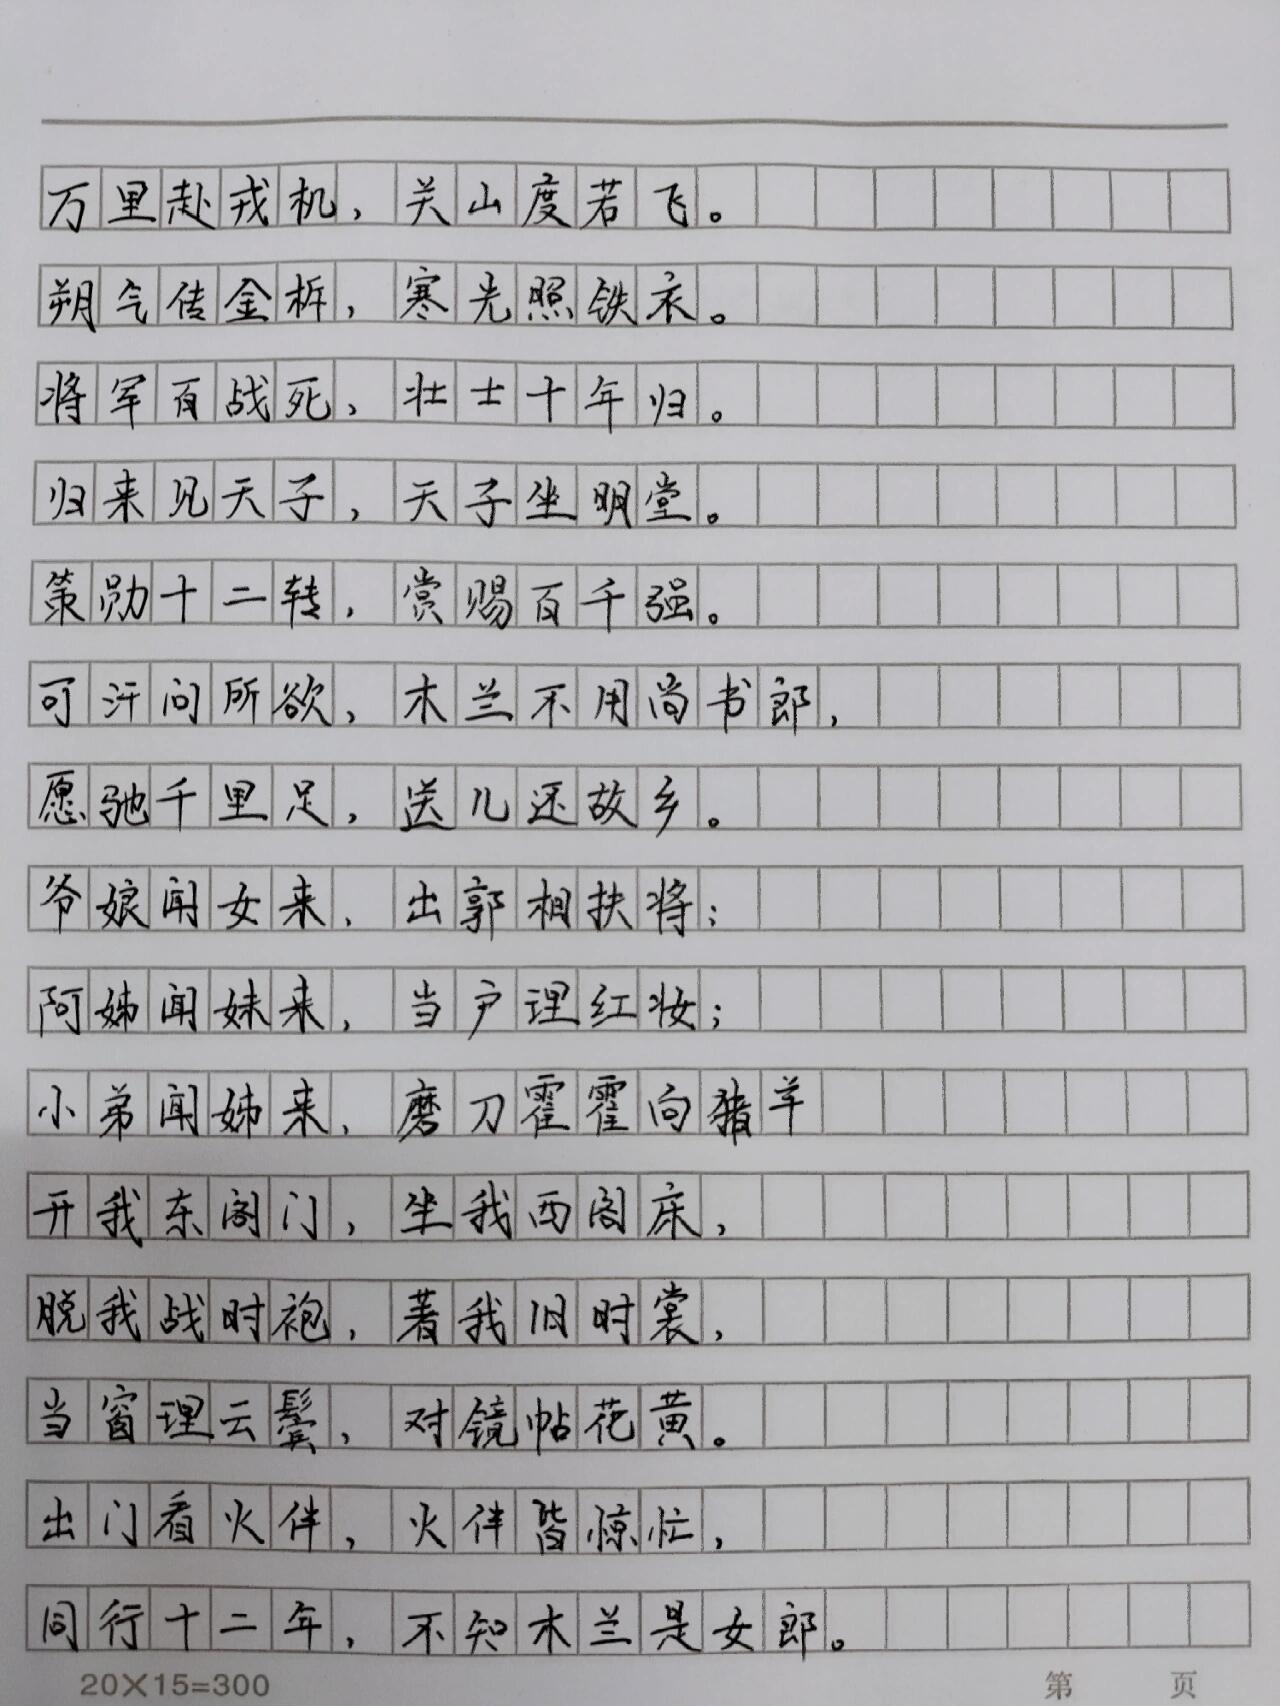 万里赴戎机，关山度若飞。
朔气传金柝，寒光照铁衣。
将军百战死，壮士十年归。
归来见天子，天子坐明堂。
策勋十二转，赏赐百千强。
可汗问所欲，木兰不用尚书郎，
愿驰千里足，送儿还故乡。
爷娘闻女来，出郭相扶将；
阿姊闻妹来，当户理红妆；
小弟闻姊来，磨刀霍霍向猪羊
开我东阁门，坐我西阁床，
脱我战时袍，著我旧时裳，
当窗理云鬓，对镜帖花黄。
出门看火伴，火伴皆惊忙，
同行十二年，不知木兰是女郎。
20×15=300 第 页